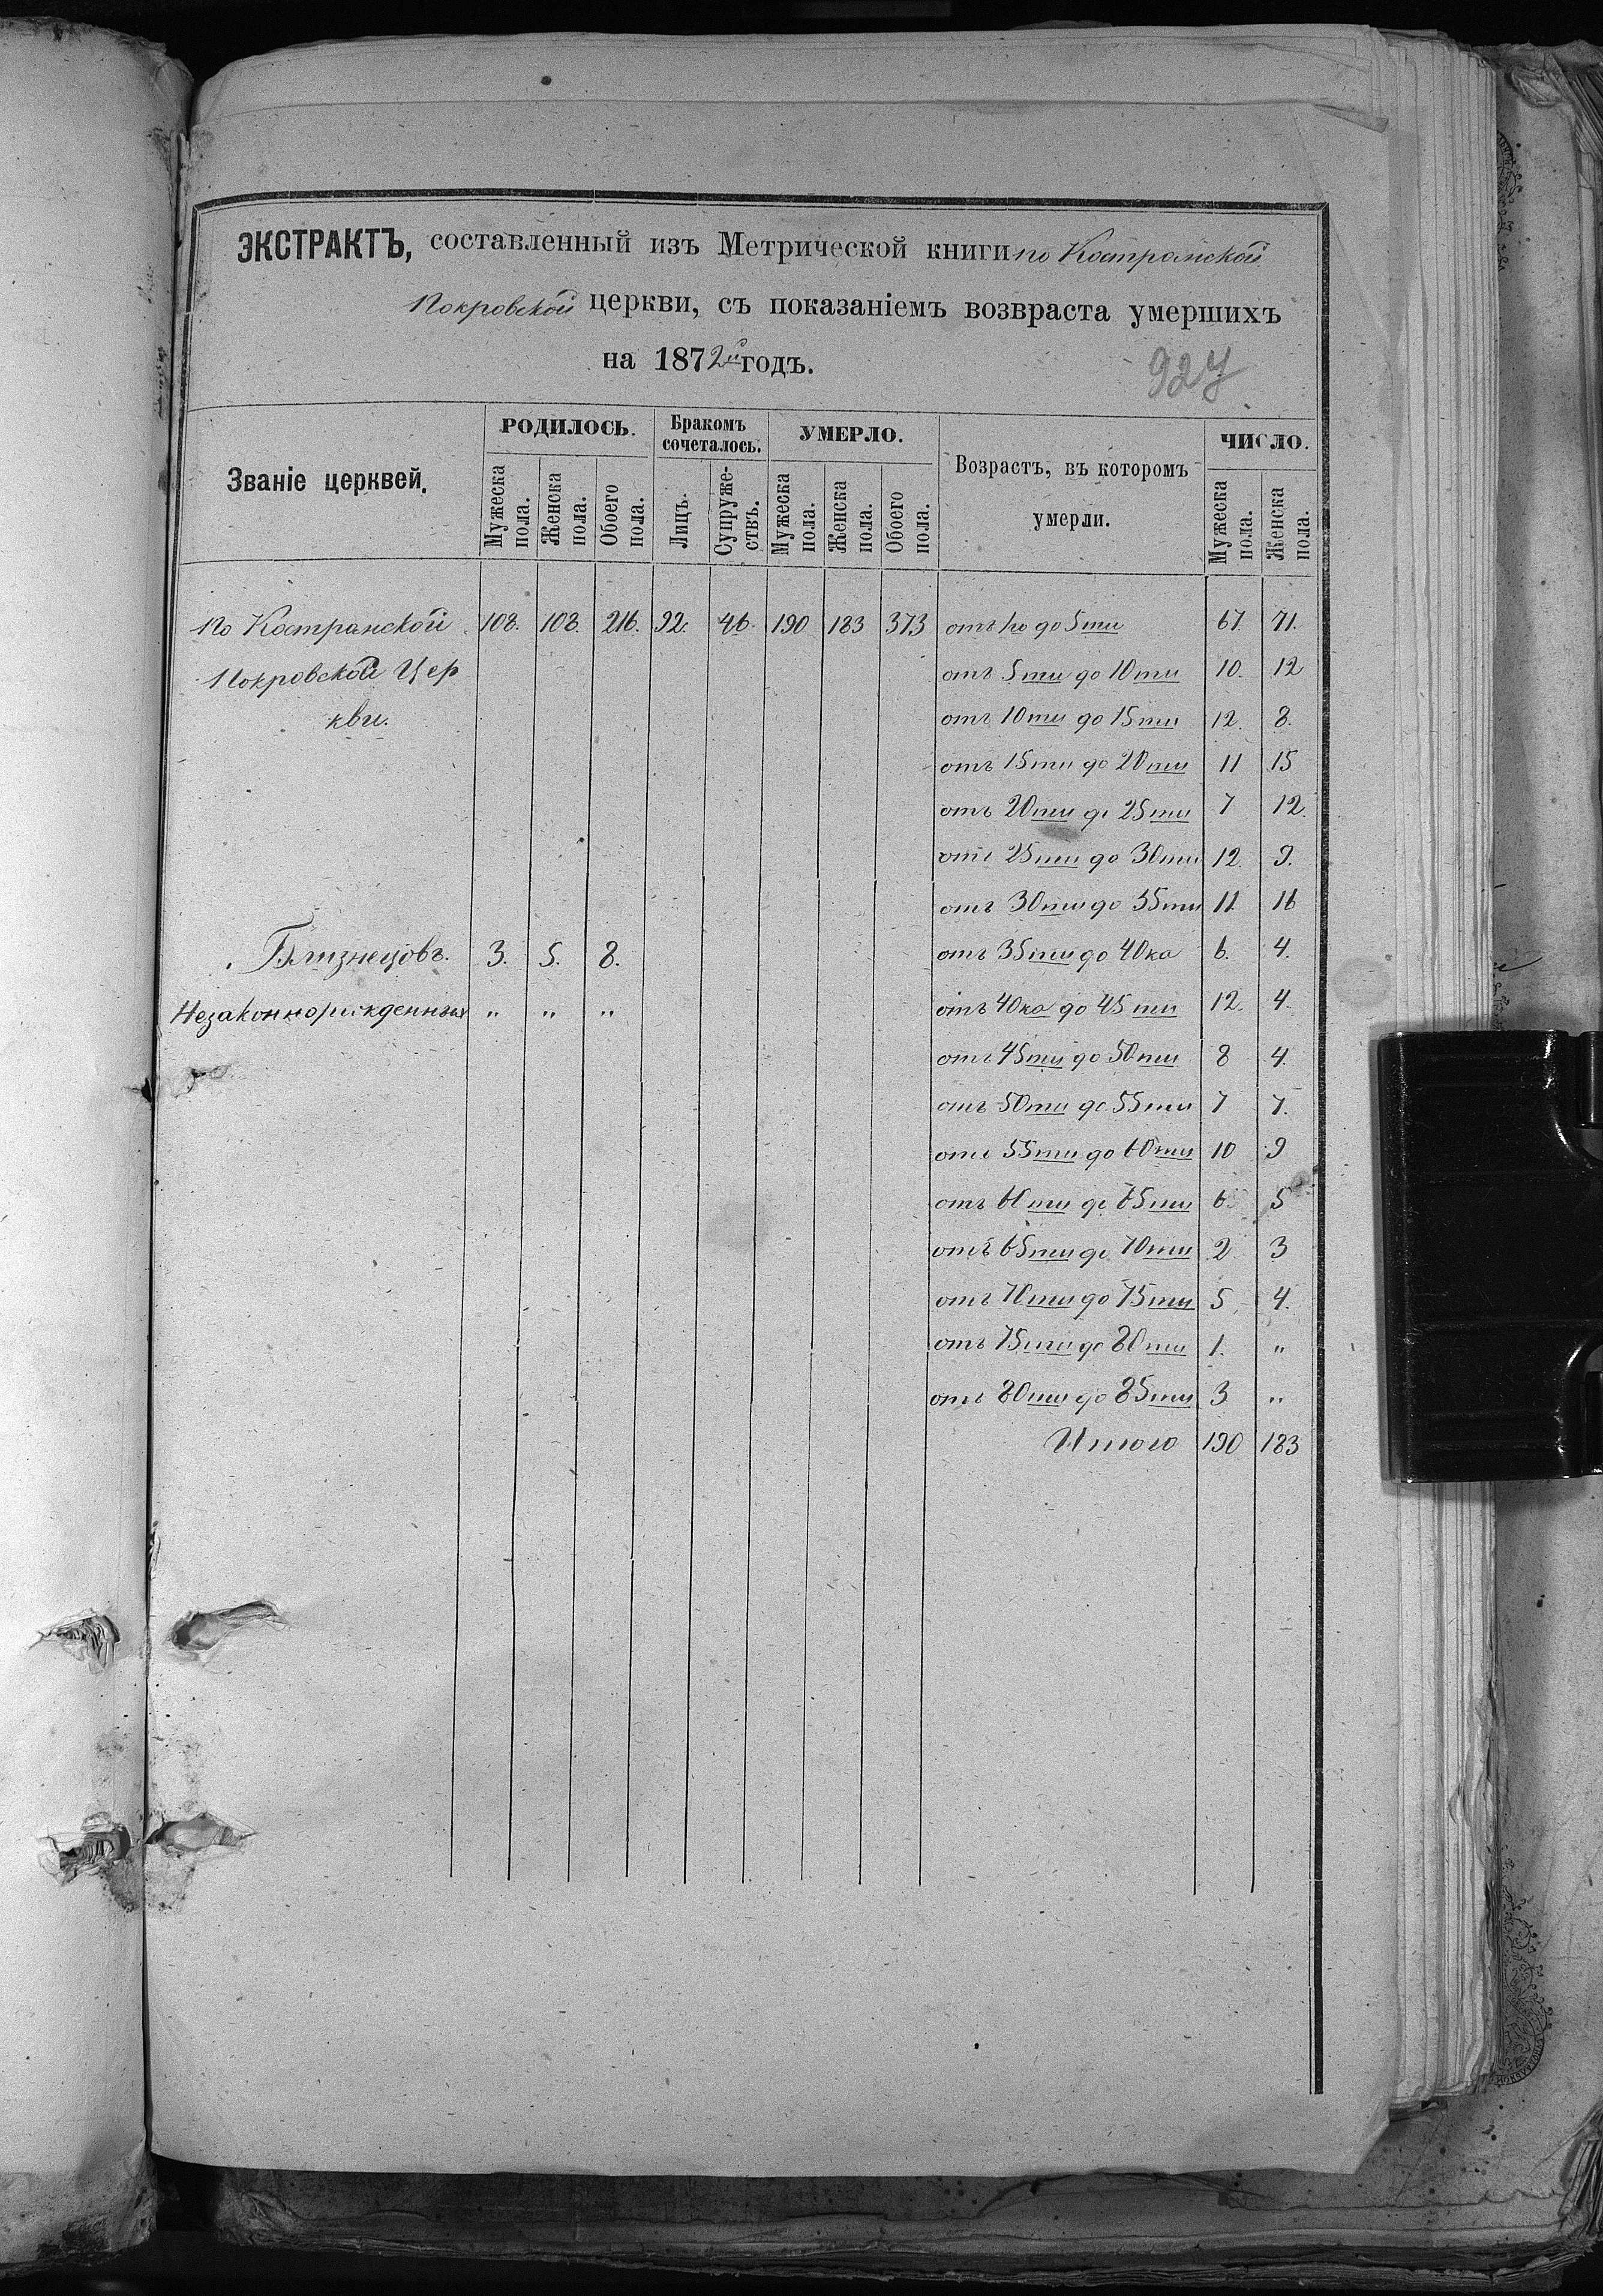 ЭКСТРАКТЪ, составленный изъ Метрической книги по Костранской
Покровской церкви, съ показаніемъ возвраста умершихъ
на 1872й годъ.
927
Званіе церквей.
РОДИЛОСЬ.
Бракомъ сочеталось.
УМЕРЛО.
Возрастъ, въ которомъ умерли.
ЧИСЛО.
Мужеска пола.
Женска пола.
Обоего пола.
Лицъ.
Супружествъ.
Мужеска пола.
Женска пола.
Обоего пола.
Мужеска пола.
Женска пола.
По Костранской 108. 108. 216. 92. 46. 190 183 373 отъ 1го до 5ти 67. 71.
Покровской Цер отъ 5ти до 10ти 10. 12
кви. отъ 10ти до 15ти 12. 8.
отъ 15ти до 20ти 11 15
отъ 20ти до 25ти 7 12.
отъ 25ти до 30ти 12. 9.
отъ 30ти до 35ти 11. 16
Близнецовъ. 3. 5. 8. отъ 35ти до 40ка 6. 4.
Незаконнорожденныхъ " " " отъ 40ка до 45ти 12. 4.
отъ 45ти до 50ти 8 4.
отъ 50ти до 55ти 7 7.
отъ 55ти до 60ти 10 9
отъ 60ти до 65ти 6 5
отъ 65ти до 70ти 2 3
отъ 70ти до 75ти 5 4.
отъ 75ти до 80ти 1. "
отъ 80ти до 85ти 3 "
Итого 190 183